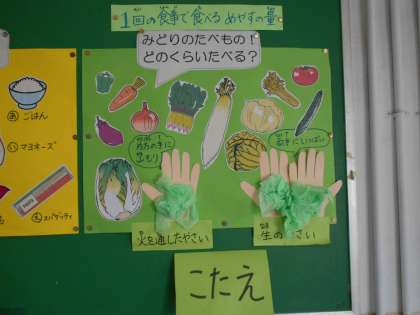 1回の食事で食べるめやすの量
みどりのたべもの！
どのくらいたべる？
あ ごはん
い マヨネーズ
スパゲッティ
片方の手に
山もり
両手にいっぱい
火を通したやさい
生の さい
こたえ